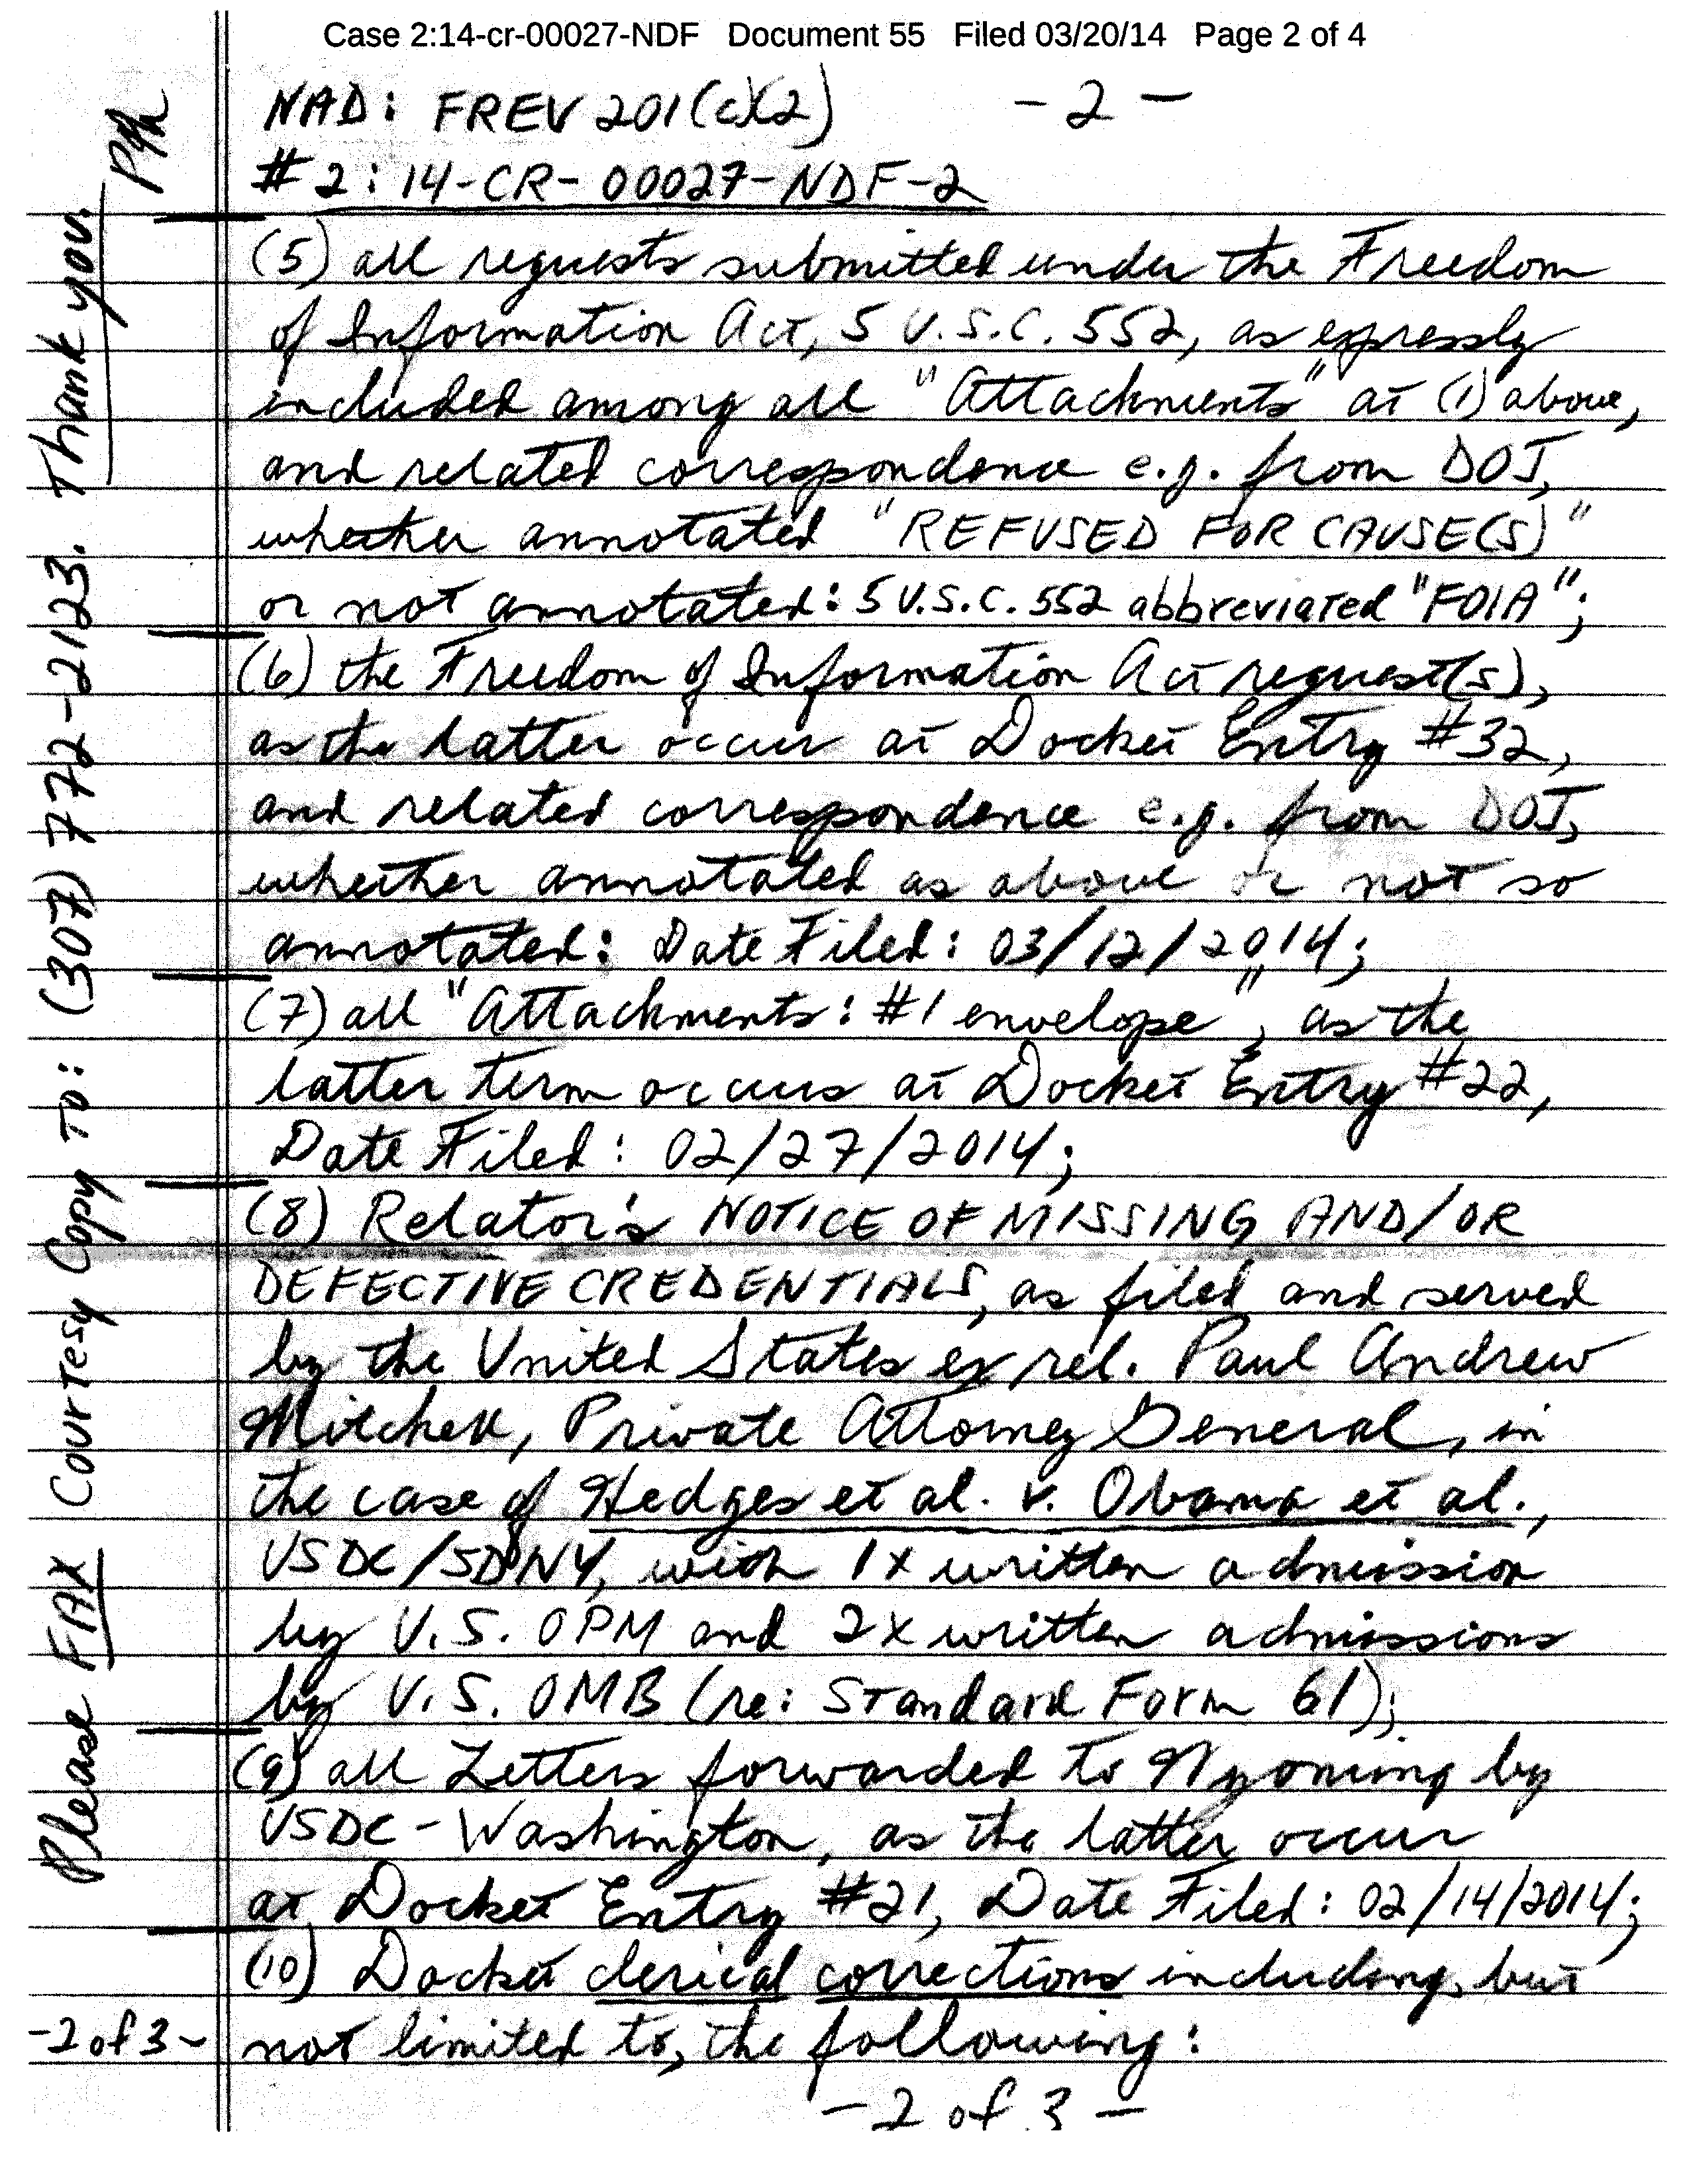 Case 2:14-cr-00027-NDF Document 55 Filed 03/20/14 Page 2 of 4
NAD: FREV 201(c)(2) - 2 -
#2: 14-CR-00027-NDF-2
(5) all requests submitted under the Freedom
of Information Act, 5 U.S.C. 552, as expressly
included among all "Attachments" at (1) above,
and related correspondence e.g. from DOJ,
whether annotated "REFUSED FOR CAUSE(S)"
or not annotated: 5 U.S.C. 552 abbreviated "FOIA";
(6) the Freedom of Information Act request(s),
as the latter occur at Docket Entry #32,
and related correspondence e.g. from DOJ,
whether annotated as above or not so
annotated: Date Filed: 03/12/2014;
(7) all "Attachments: #1 envelope", as the
latter term occurs at Docket Entry #22,
Date Filed: 02/27/2014;
(8) Relator's NOTICE OF MISSING AND/OR
DEFECTIVE CREDENTIALS, as filed and served
by the United States ex rel. Paul Andrew
Mitchell, Private Attorney General, in
the case of Hedges et al. v. Obama et al.,
USDC/SDNY, with 1x written admission
by U.S. OPM and 2x written admissions
by U.S. OMB (re: Standard Form 61);
(9) all Letters forwarded to Wyoming by
USDC-Washington, as the latter occur
at Docket Entry #21, Date Filed: 02/14/2014;
(10) Docket clerical corrections including, but
not limited to, the following:
- 2 of 3 -
-2 of 3-
Please FAX Courtesy Copy To: (307) 772-2123. Thank you.